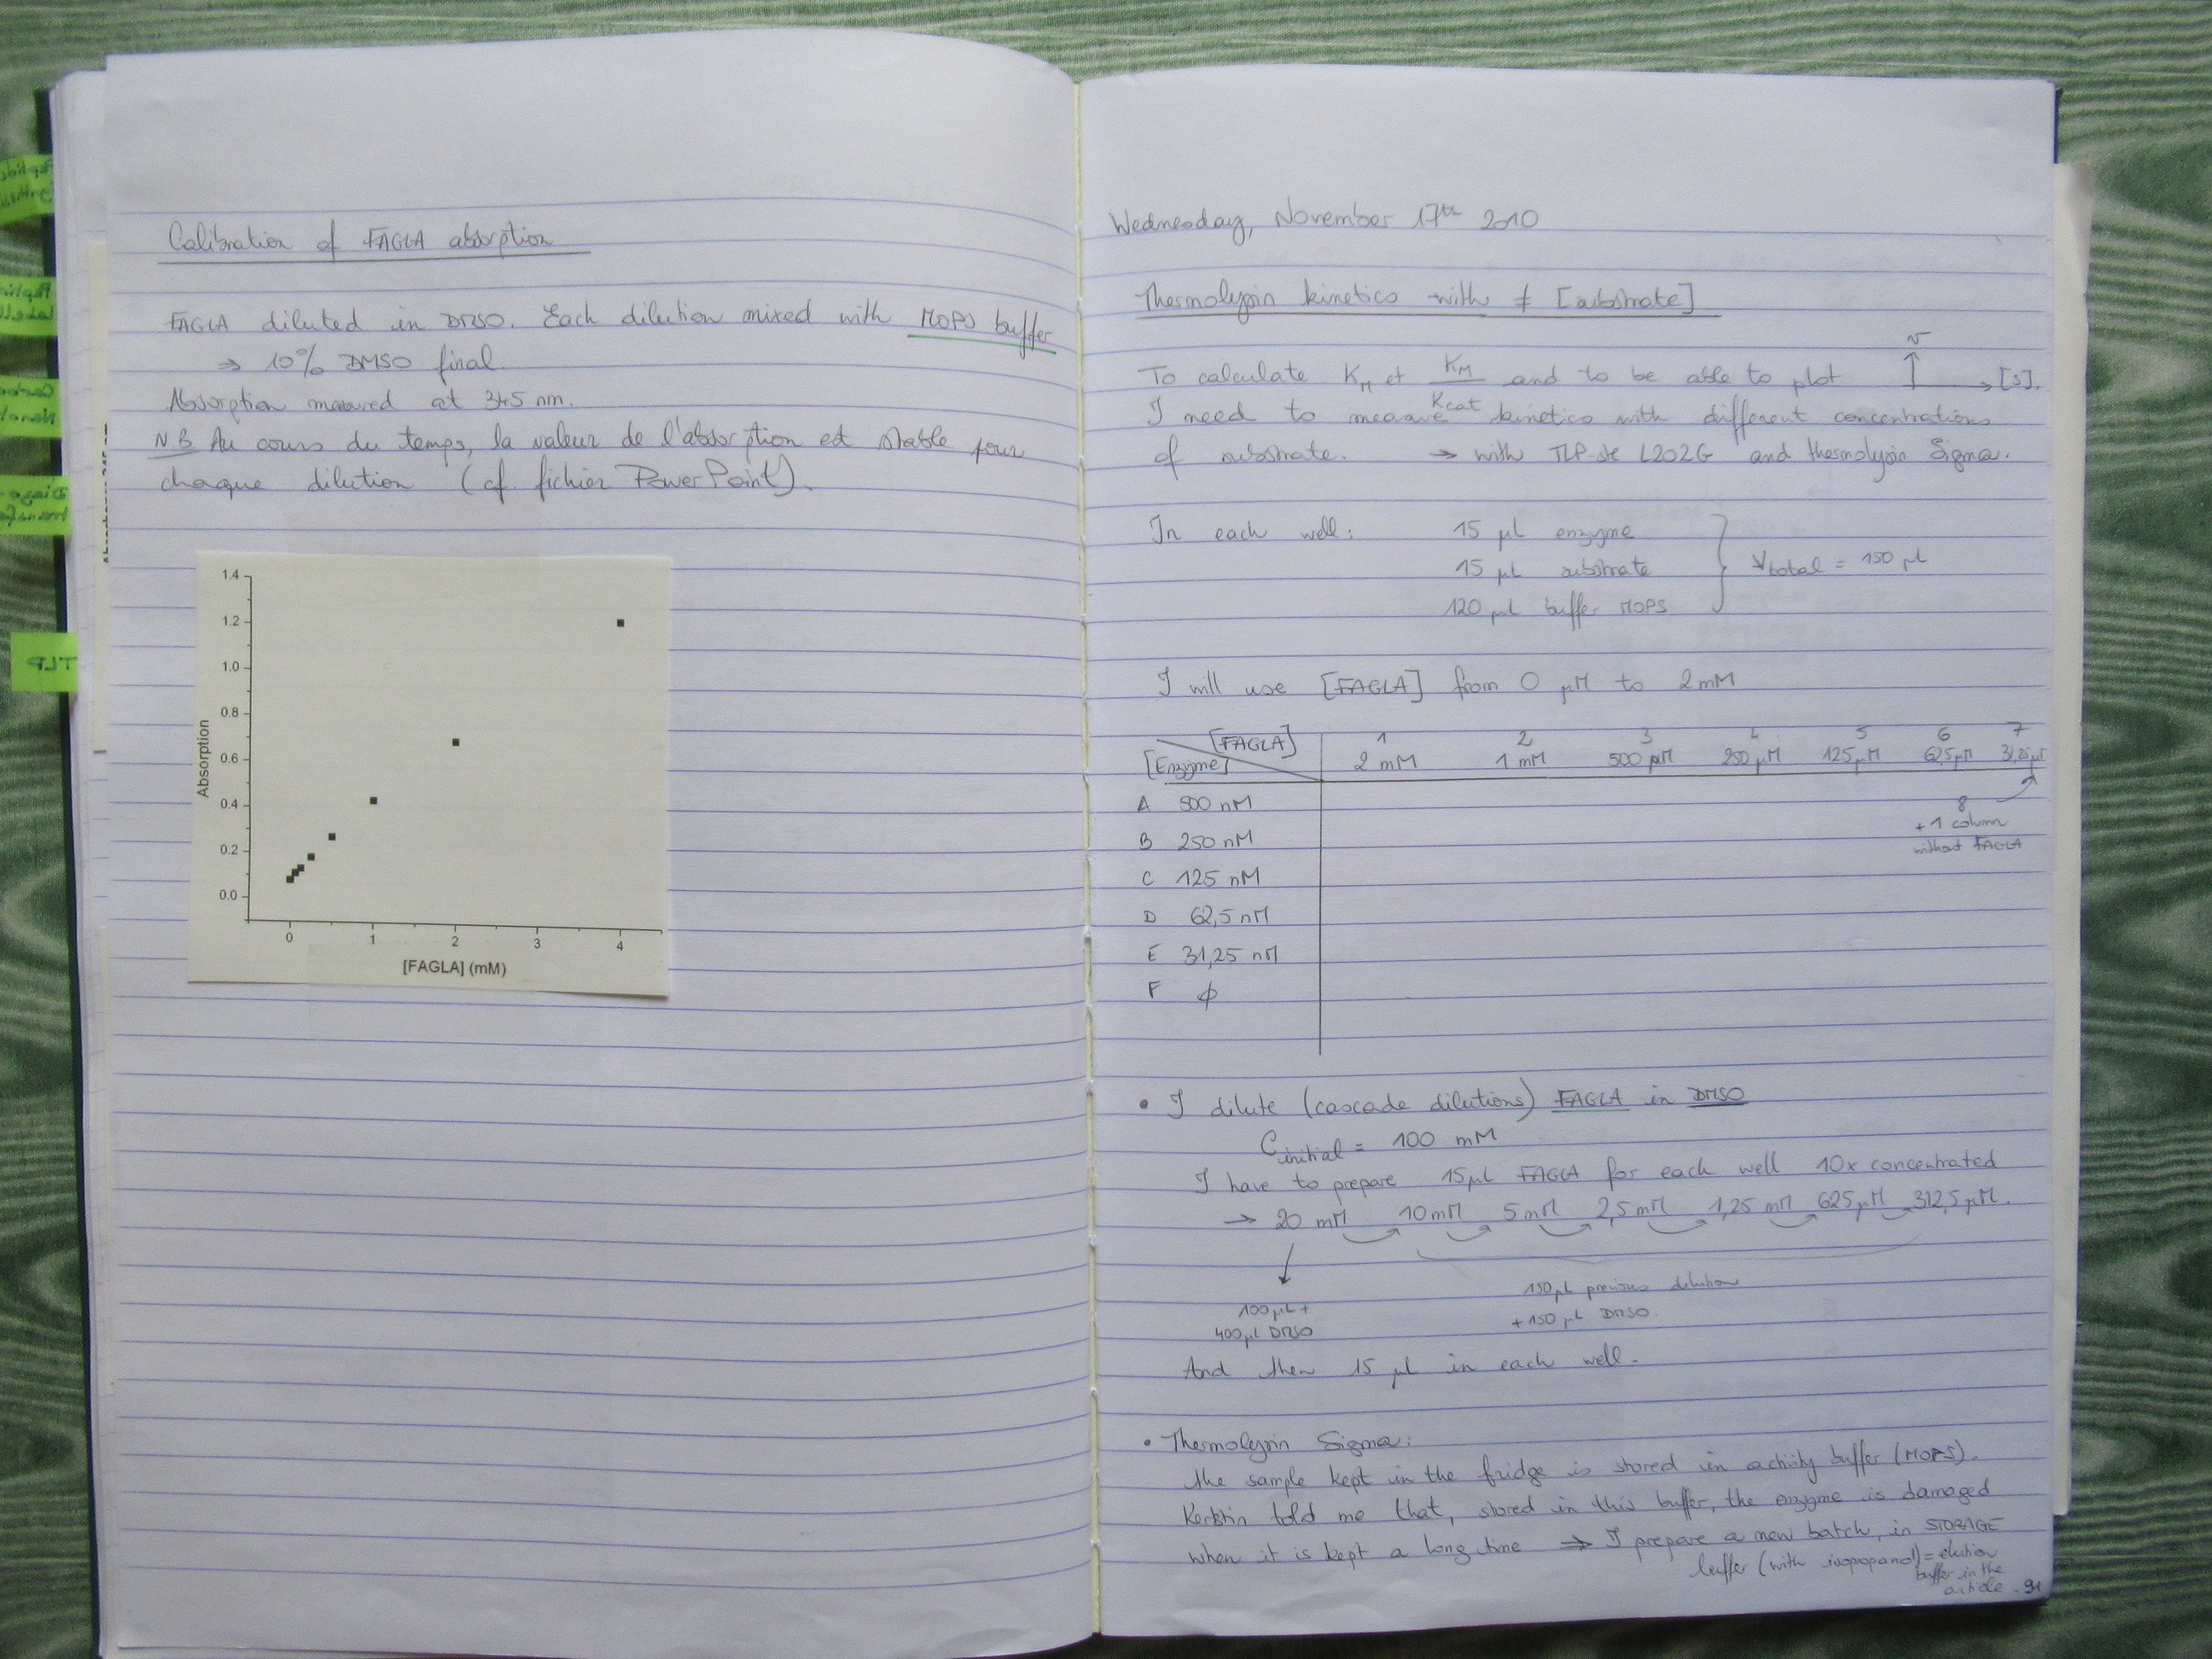 Calibration of FAGLA absorption
FAGLA diluted in DMSO. Each dilution mixed with MOPS buffer
⇒ 10% DMSO final.
Absorption measured at 345 nm.
NB Au cours du temps, la valeur de l'absorption est stable pour
chaque dilution (cf. fichier PowerPoint).
1.4
1.2
1.0
0.8
0.6
0.4
0.2
0.0
Absorption
0 1 2 3 4
[FAGLA] (mM)
TLP
Wednesday, November 17th 2010
Thermolysin kinetics with ≠ [substrate]
To calculate KM et KM/Kcat and to be able to plot v [S].
I need to measure kinetics with different concentrations
of substrate. → with TLP-ste L202G and thermolysin Sigma.
In each well: 15 µL enzyme
15 µL substrate
120 µL buffer MOPS
Vtotal = 150 µL
I will use [FAGLA] from 0 µM to 2 mM
1 2 3 4 5 6 7
[FAGLA] 2 mM 1 mM 500 µM 250 µM 125 µM 62,5 µM 31,25 µM
[Enzyme]
A 500 nM
B 250 nM
C 125 nM
D 62,5 nM
E 31,25 nM
F ϕ
8
+ 1 column
without FAGLA
• I dilute (cascade dilutions) FAGLA in DMSO
Cinitial = 100 mM
I have to prepare 15 µL FAGLA for each well 10x concentrated
→ 20 mM 10 mM 5 mM 2,5 mM 1,25 mM 625 µM 312,5 µM.
100 µL +
400 µL DMSO
150 µL previous dilution
+ 150 µL DMSO.
And then 15 µL in each well.
• Thermolysin Sigma:
the sample kept in the fridge is stored in activity buffer (MOPS).
Kerstin told me that, stored in this buffer, the enzyme is damaged
when it is kept a long time ⇒ I prepare a new batch, in STORAGE
buffer (with isopropanol) = elution
buffer in the
article.
91